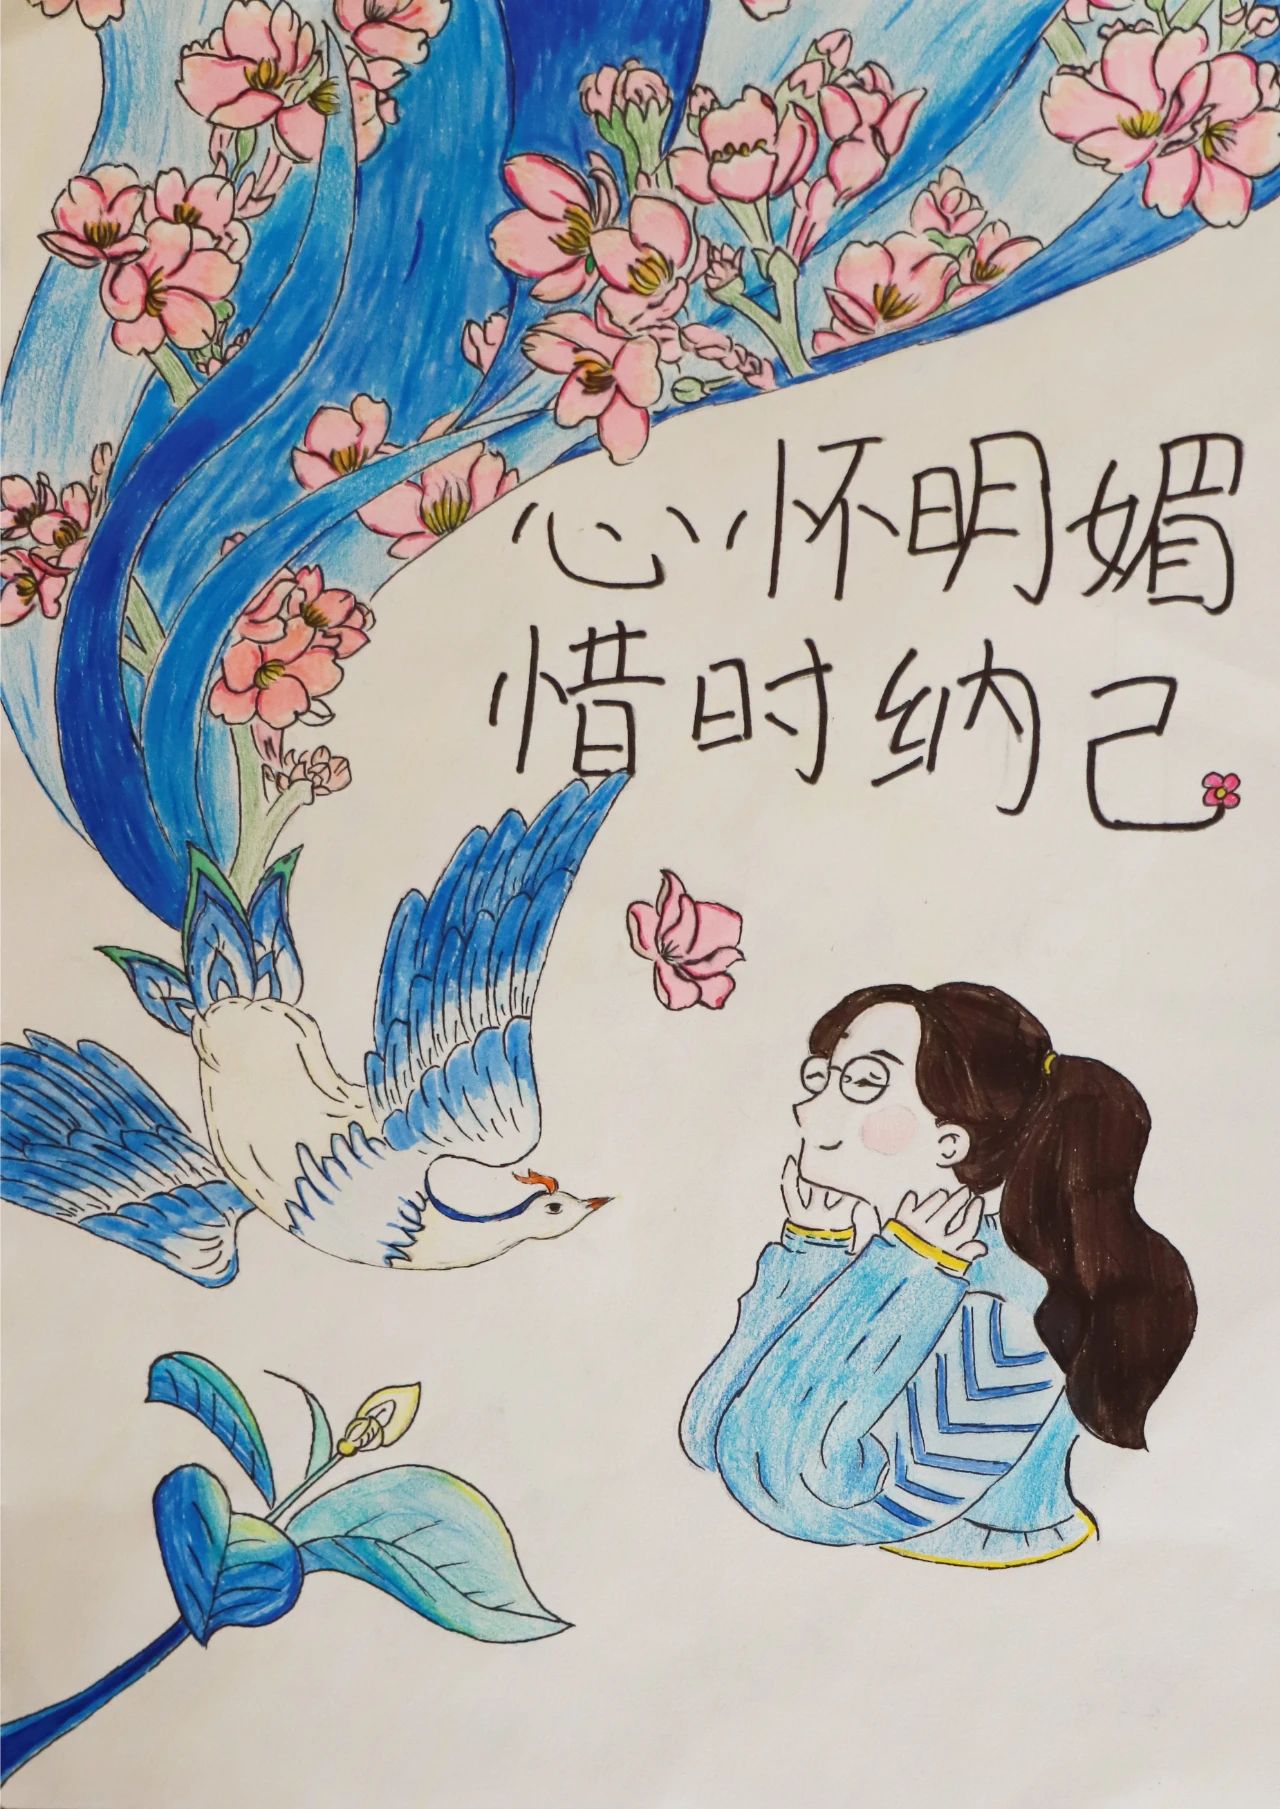 心怀明媚
惜时纳己